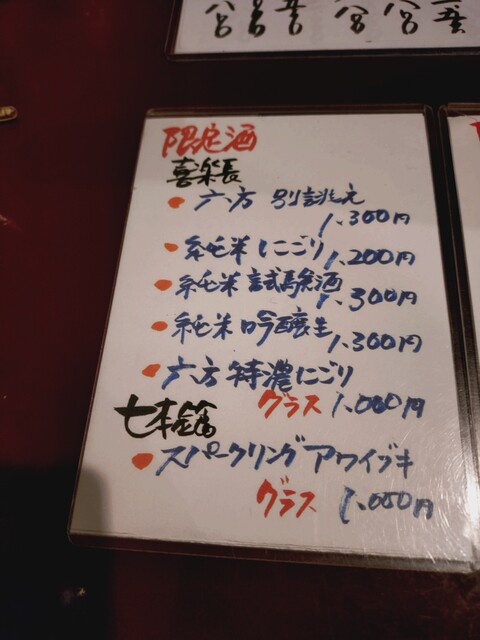 八〇 〇〇 八〇 八〇
限定酒
喜楽長
• 六方 別誂え
1,300円
• 純米にごり 1,200円
• 純米試験酒 1,300円
• 純米吟醸生 1,300円
• 六方 特濃にごり
グラス 1,000円
七本鎗
• スパークリングアワイブキ
グラス 1,000円